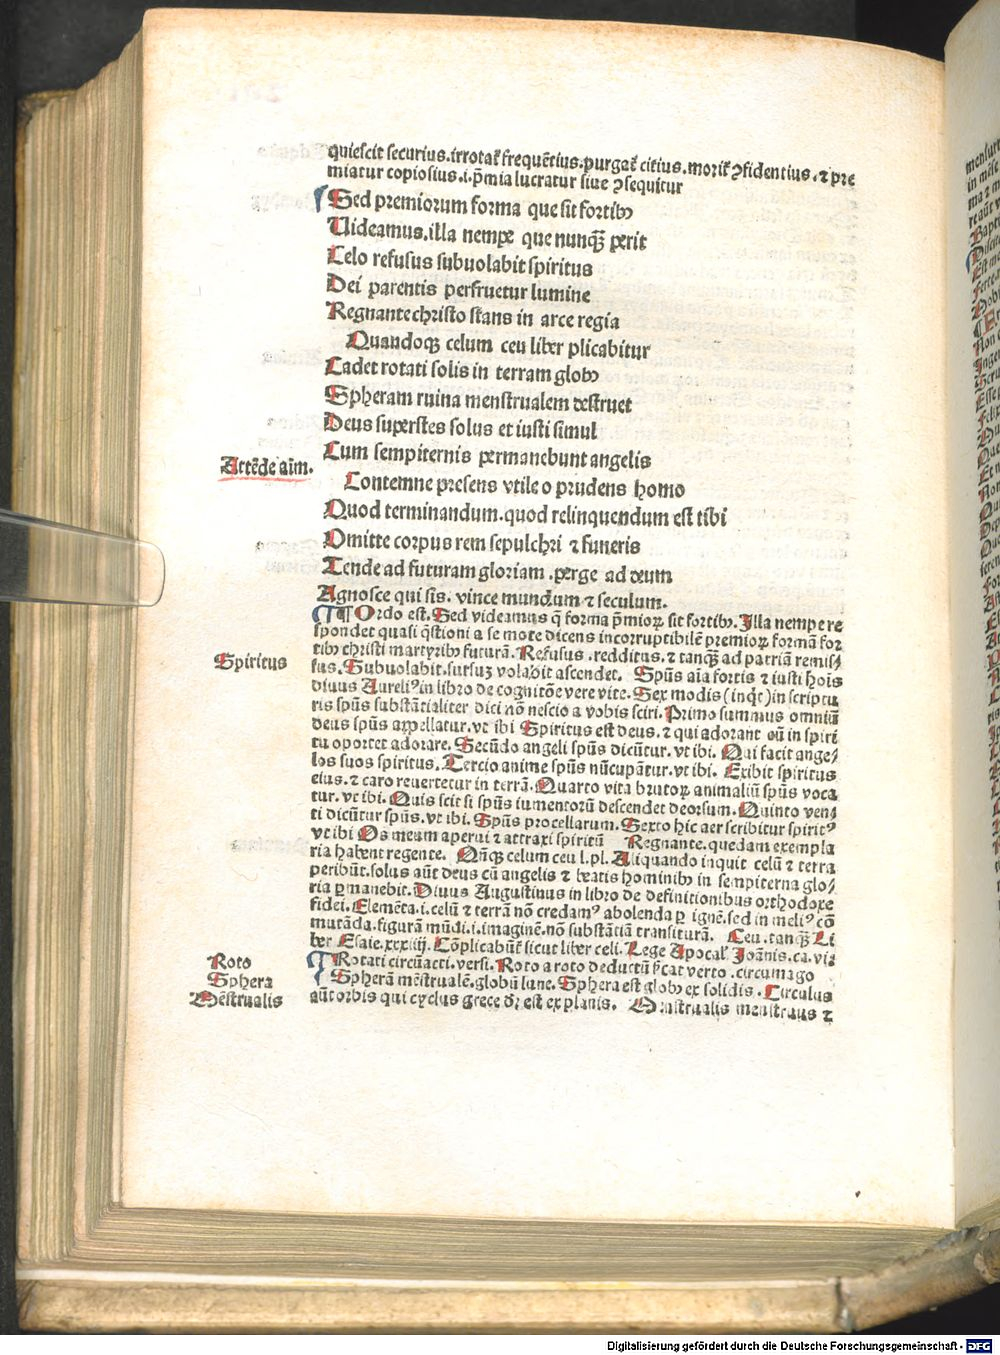 quiescit securius.irrotať frequẽtius.purgať citius.moriť ꝯfidentius.⁊ pre
miatur copiosius.i.p̃mia lucratur siue ꝯsequitur
Sed premiorum forma que sit fortibꝰ
Uideamus.illa nempe que nunqꝫ perit
Celo refusus subuolabit spiritus
Dei parentis perfruetur lumine
Regnante christo stans in arce regia
Quandoqꝫ celum ceu liber plicabitur
Cadet rotati solis in terram globꝰ
Spheram ruina menstrualem destruet
Deus superstes solus et iusti simul
Cum sempiternis permanebunt angelis
Attẽde aĩm.
Contemne presens vtile o prudens homo
Quod terminandum.quod relinquendum est tibi
Omitte corpus rem sepulchri ⁊ funeris
Tende ad futuram gloriam.perge ad deum
Agnosce qui sis. vince mundum ⁊ seculum.
¶ Ordo est. Sed videamus q̃ forma p̃mioꝝ sit fortibꝰ. Illa nempe re
spondet quasi q̃stioni a se mote dicens incorruptibilẽ premioꝝ formã for
tibꝰ christi martyribꝰ futurã. Refusus.redditus.⁊ tanqꝫ ad patriã remis/
Spiritus
sus. Subuolabit.sursuꝫ volabit ascendet. Spũs aĩa fortis ⁊ iusti hoĩs
diuus Aureliꝰ in libro de cognitõe vere vite. Sex modis (inq̃t) in scriptu
ris spũs substãtialiter dici nõ nescio a vobis sciri. Primo summus omniũ
deus spũs appellatur.vt ibi Spiritus est deus.⁊ qui adorant eũ in spiri
tu oportet adorare. Secũdo angeli spũs dicũtur.vt ibi. Qui facit ange/
los suos spiritus. Tercio anime spũs nũcupãtur.vt ibi. Exibit spiritus
eius.⁊ caro reuertetur in terrã. Quarto vita brutoꝝ animaliũ spũs voca
tur. vt ibi. Quis scit si spũs iumentorũ descendet deorsum. Quinto ven/
ti dicũtur spũs.vt ibi. Spũs procellarum. Sexto hic aer scribitur spiritꝰ
vt ibi Os meum aperui ⁊ attraxi spiritũ Regnante.quedam exempla
ria habent regente. Qñqꝫ celum ceu l.pl. Aliquando inquit celũ ⁊ terra
peribũt.solus aũt deus cũ angelis ⁊ beatis hominibꝰ in sempiterna glo/
ria ꝑmanebit. Diuus Augustinus in libro de definitionibus orthodoxe
fidei. Elemẽta.i.celũ ⁊ terrã nõ credamꝰ abolenda ꝑ ignẽ.sed in meliꝰ cõ
mutãda.figurã mũdi.i.imaginẽ.nõ substãtiã transiturã. Ceu.tanqꝫ Li
ber Esaie.xxxiiij. Cõplicabũť sicut liber celi. Lege Apocaľ. Joãnis.ca.vi.
Roto
¶ Rotati circũacti.versi. Roto a roto deductũ sĩcat verto.circumago
Sphera
Spherã mẽstrualẽ.globũ lune. Sphera est globꝰ ex solidis. Circulus
Mẽstrualis
aũt orbis qui cyclus grece dr̃ est ex planis. Menstrualis menstruus ⁊
Digitalisierung gefördert durch die Deutsche Forschungsgemeinschaft - DFG